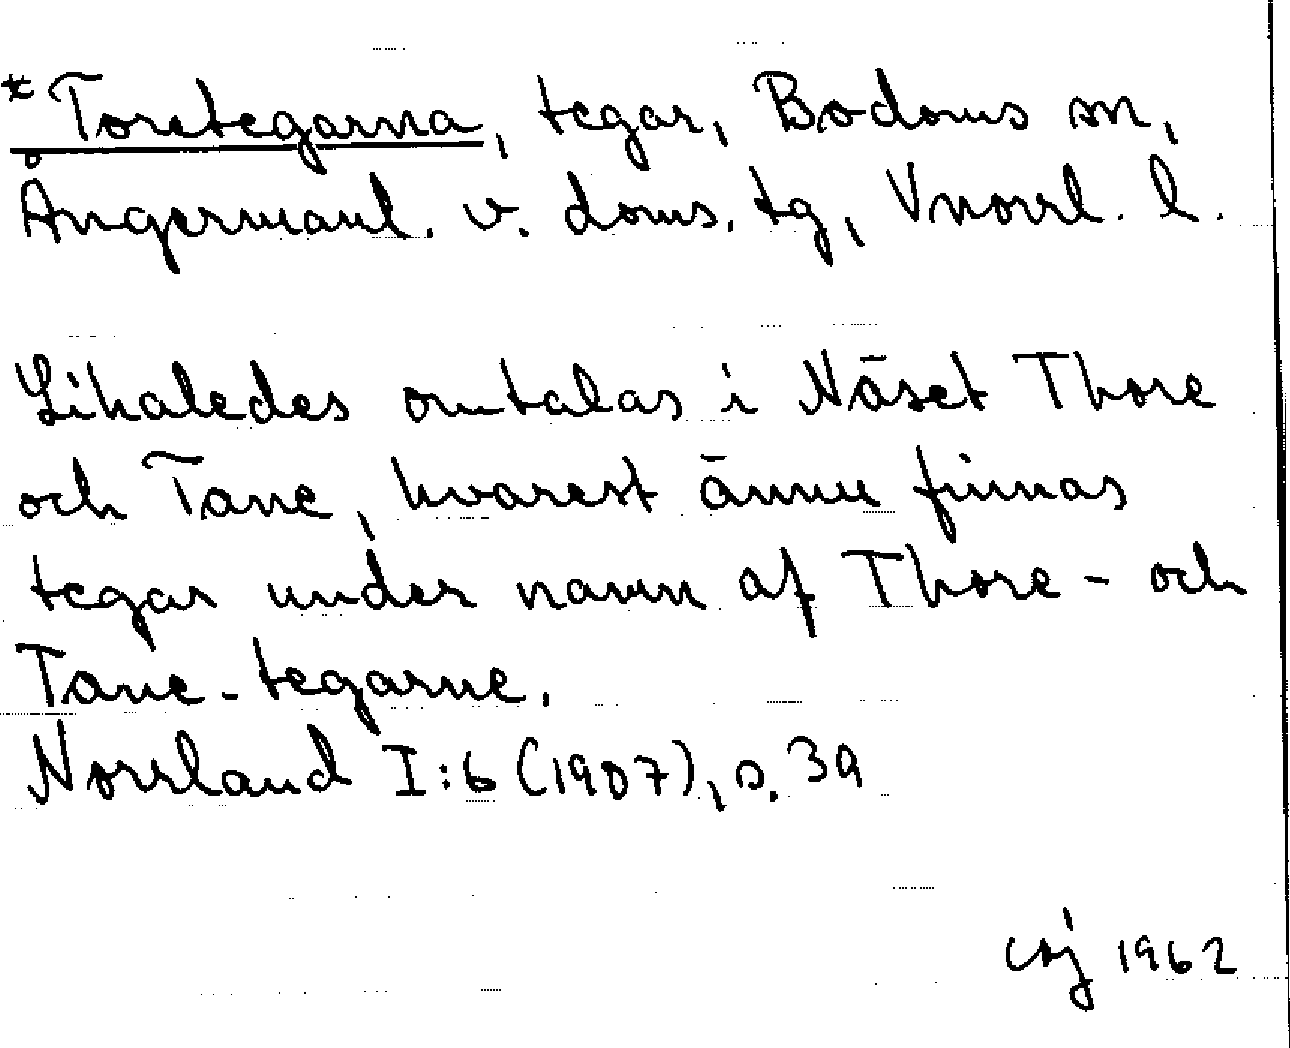 *Toretegarna, tegar, Bodums sn,
Ångermanl. v. doms. tg, Vnorrl. l.
Likaledes omtalas i Näset Thore
och Tane, hvarest ännu finnas
tegar under namn af Thore- och
Tane-tegarne.
Norrland I:6 (1907), s. 39
1962